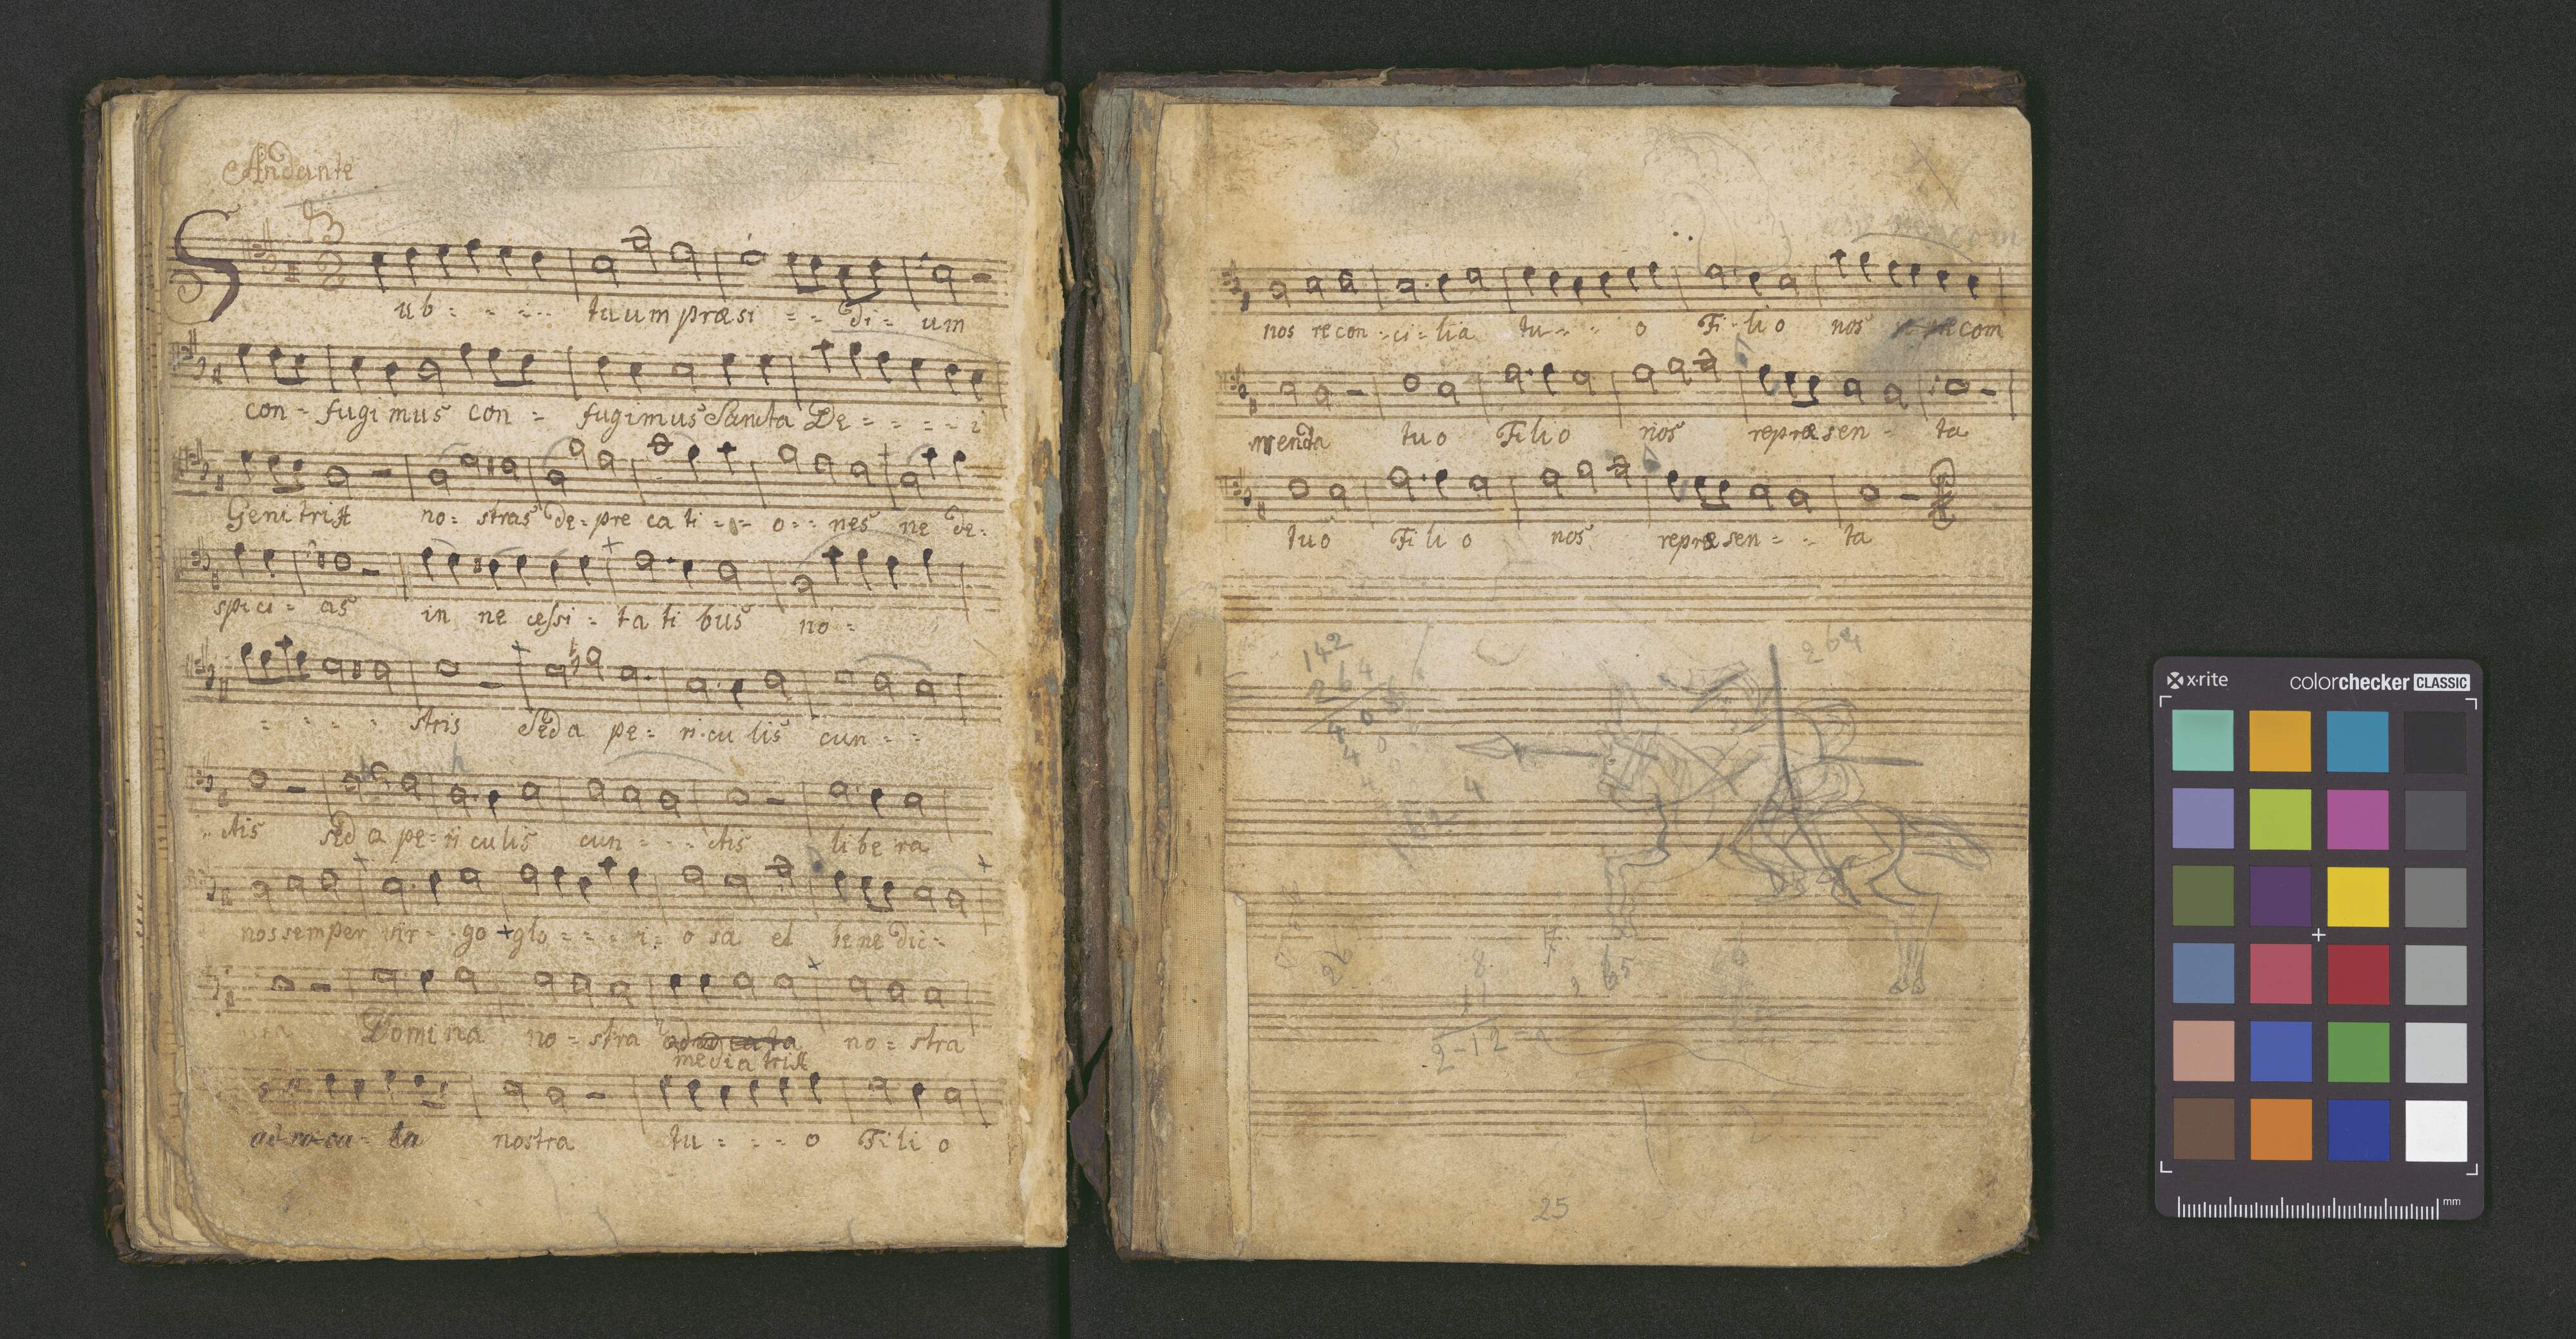 Andante
Sub - - - - tuum præsi - - di - um
con - fugimus con - fugimus Sancta De - - - - i
Genitrix no - stras de - preca ti - - o - - nes ne de -
spici - as in ne cessi - ta ti bus no -
- - - - stris Sed a pe - ri - cu lis cun - -
- ctis sed a pe - ri culis cun - - - ctis libera
nos semper vir - - go glo - - - ri - o sa et bene dic -
Domina no - stra no - stra
mediatrix
advoca - ta nostra tu - - - o Filio
nos recon - ci - lia tu - - - o Fi - lio nos com
menda tuo Filio nos repræsen - ta
tuo Filio nos repræsen - - ta
142
264
264
65
2-12
25
x-rite colorchecker CLASSIC
mm